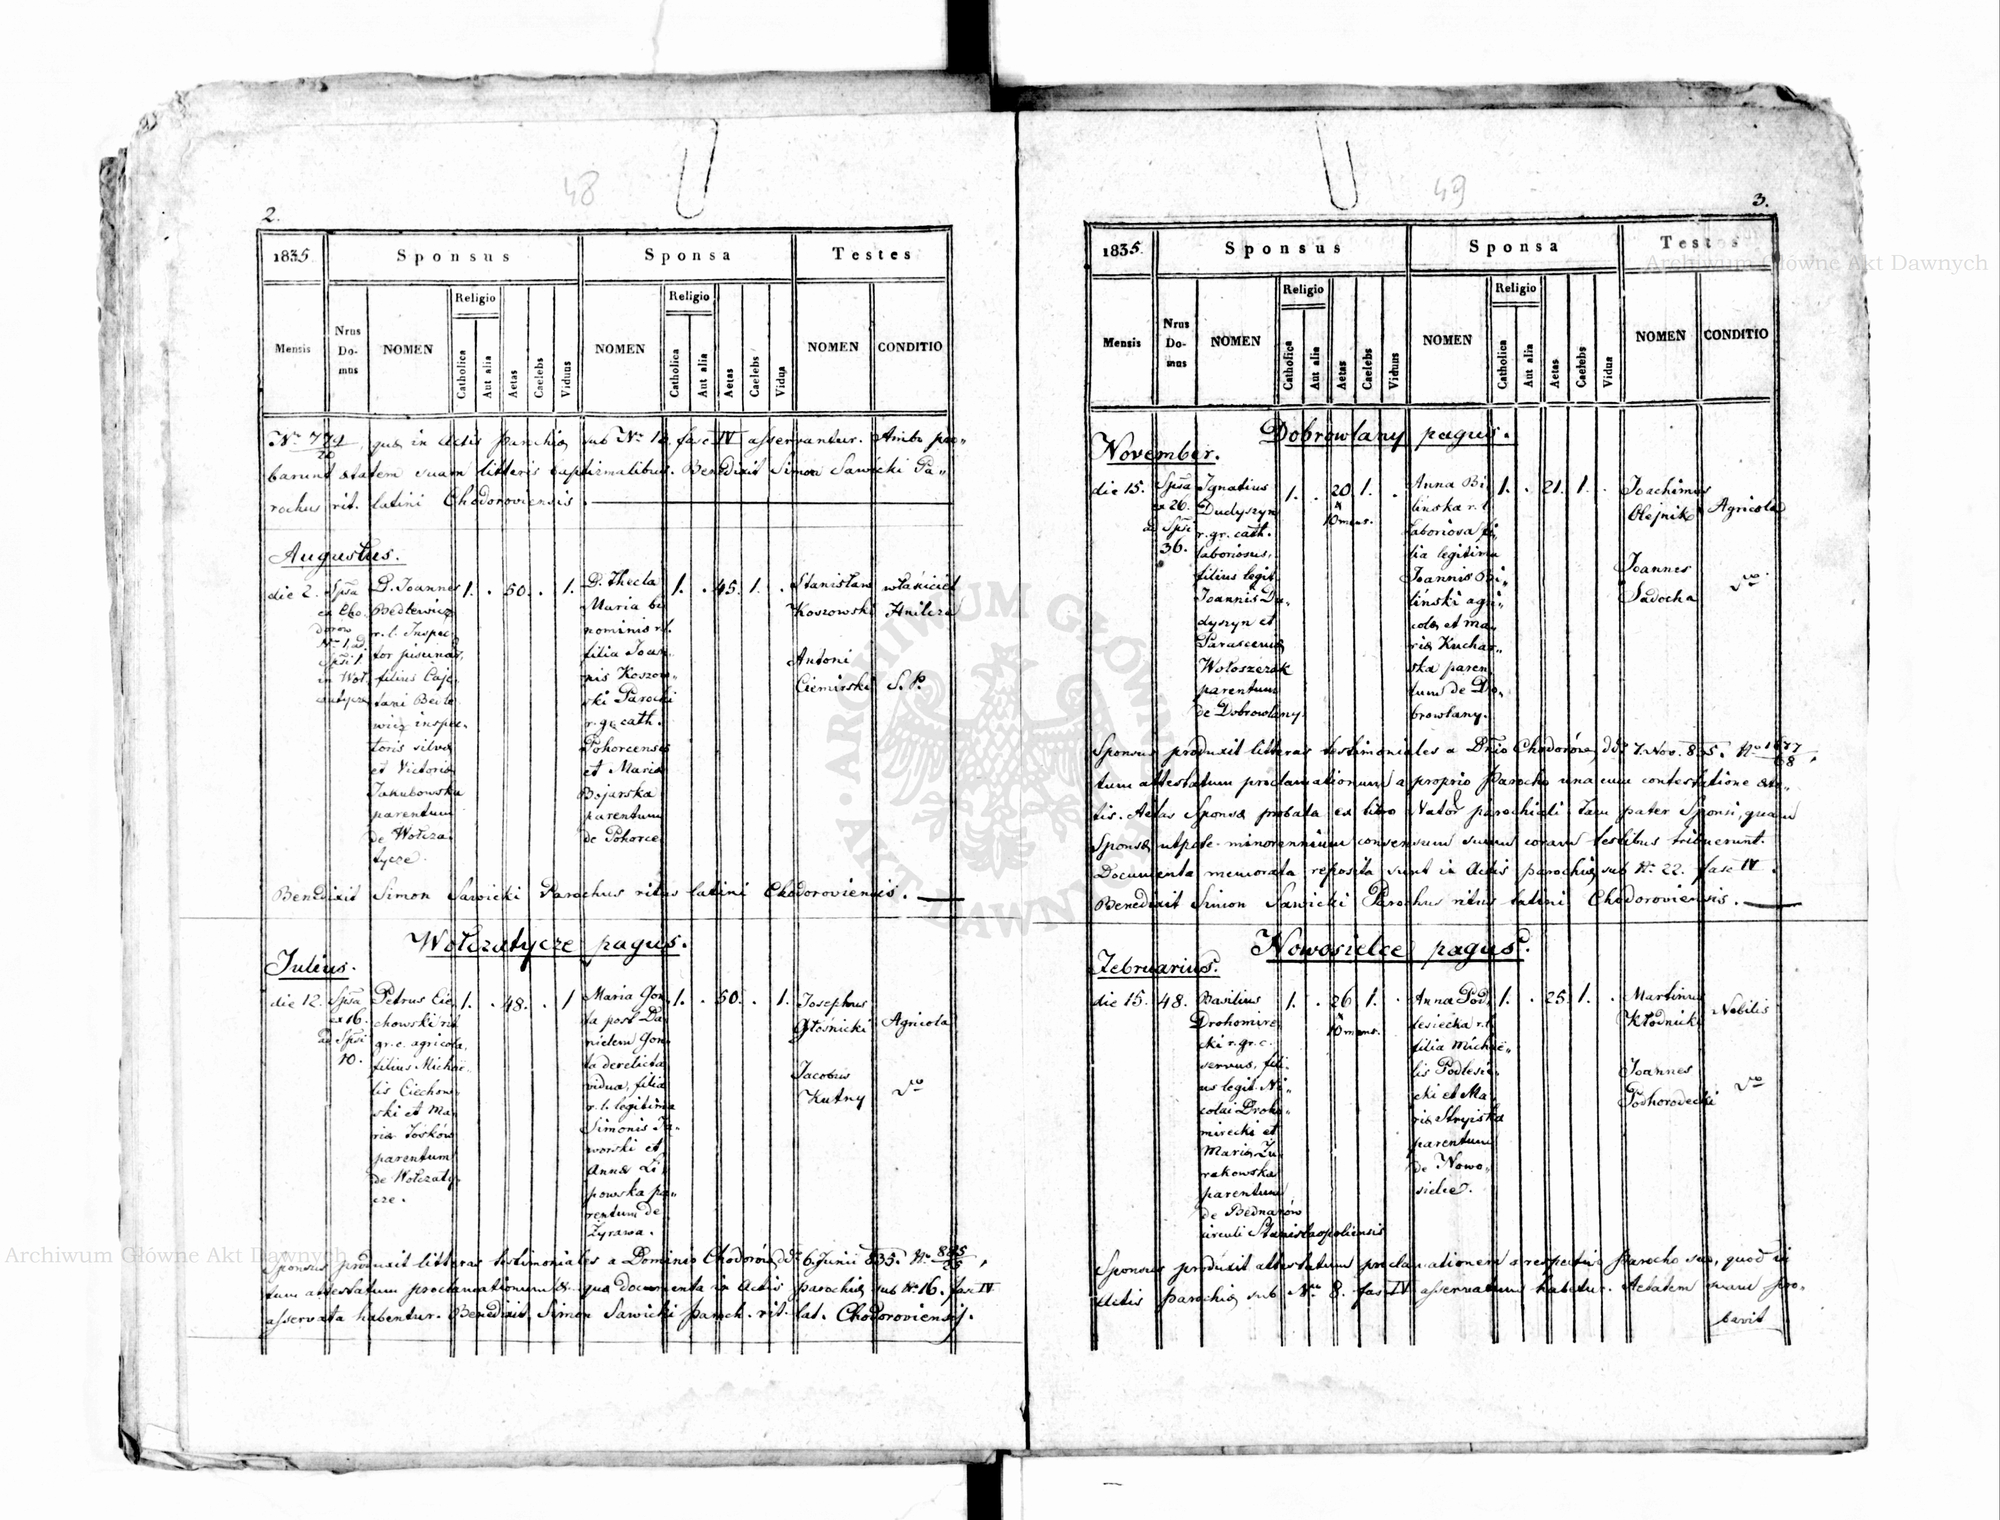 48
2.
1835. Sponsus Sponsa Testes
Mensis Nrus Domus NOMEN Religio Catholica Aut alia Aetas Caelebs Viduus NOMEN Religio Catholica Aut alia Aetas Caelebs Vidua NOMEN CONDITIO
quæ in Actis Parochiæ sub Nro fasc IV asservantur. Ambo pro„
barunt ætatem suam litteris baptismalibus. Benedixit Simon Sawicki Pa„
rochus rit. latini Chodoroviensis.
Augustus.
die 2.
Spsa
ex Cho„
dorow
Nr. 1. ad
Spsi 1.
in Woł
czatycze
D. Joannes
Bedlewicz
r. l. Inspec
tor piscinar,
filius Caje
tani Bedle
wicz inspec„
toris silvæ
et Victoriæ
Jakubowska
parentum
de Wołcza
tycze.
1. . 50. . 1.
D. Thecla
Maria bi
nominis r.l.
filia Joan
nis Koszow„
ski Parochi
r. gr. cath.
Pohorcensis
et Mariæ
Bojarska
parentum
de Pohorce
1. . 45. 1. .
Stanisław
Koszowski
właściciel
Hnilcza
Antoni
Ciemirski
S. P.
Benedixit Simon Sawicki Parochus ritus latini Chodoroviensis.
Wołczatycze pagus.
Julius.
die 12.
Spsa
ex 16.
ad Spsi
10.
Petrus Cie
chowski rit
gr. c. agricola,
filius Micha
lis Ciechow
ski et Ma
riæ Joskow
parentum
de Wołczaty
cze.
1. . 48. . 1
Maria Gon
ta post Da
nielem Gon
ta derelicta
vidua, filia
r. l. legitima
Simonis Ja„
worski et
Annæ Li
powska pa„
rentum de
Żyrawa.
1. . 50. . 1.
Josephus
Głośnicki
Agricola
Jacobus
Kutny
dto
Sponsus produxit litteras testimoniales a Dominio Chodorów, ddo 6. Junii 835. Nro
tum attestatum proclamationum quæ documenta in Actis parochiæ sub Nr. 16. fasc IV
asservata habentur. Benedixit Simon Sawicki Paroch. rit. lat. Chodoroviensis.
49
3.
1835. Sponsus Sponsa Testes
Mensis Nrus Domus NOMEN Religio Catholica Aut alia Aetas Caelebs Viduus NOMEN Religio Catholica Aut alia Aetas Caelebs Vidua NOMEN CONDITIO
Dobrowlany pagus.
November.
die 15.
Spsa
ex 26.
ad Spsi
36.
Ignatius
Dudyszyn
r. gr. cath.
laboriosus,
filius legit.
Joannis Du„
dyszyn et
Parascevæ
Wołoszczak
parentum
de Dobrowlany.
1. . 20 1. .
10 mens.
Anna Bi
linska r. l.
laboriosa fi„
lia legitima
Joannis Bi„
linski agri„
colæ et Ma„
riæ Kuchar„
ska paren
tum de Do„
browlany.
1. . 21. 1. .
Joachimus
Olejnik
Agricola
Joannes
Sadocha
dto
Sponsus produxit litteras testimoniales a Dnio Chodorów, ddo 7. Nov. 835. Nro
tum attestatum proclamationum a proprio Parocho una cum contestatione æta„
tis. Aetas Sponsæ probata ex libro Nator parochiali tam pater Sponsi, quam
Sponsæ utpote minorennium consensum suum coram testibus tribuerunt.
Documenta memorata reposita sunt in Actis parochiæ sub Nr. 22. fasc IV.
Benedixit Simon Sawicki Parochus ritus latini Chodoroviensis.
Nowosielce pagus.
Februarius.
die 15. 48.
Basilius
Drohomire
cki r. gr. c.
servus, fili„
us legit. Ni„
colai Droho„
mirecki et
Mariæ Żu
rakowska
parentum
de Bednarów
circuli Stanislaopoliensis
1. . 26 1. .
10 mens.
Anna Pod,
lesiecka r. l.
filia Michaë„
lis Podlesie„
cki et Ma„
riæ Stryjska
parentum
de Nowo„
sielce.
1. . 25. 1. .
Martinus
Kłodnicki
Nobilis
Joannes
Podhorodecki
dto
Sponsus produxit attestatum proclamationem a respectivo Parocho suo, quod in
Actis Parochiæ sub Nro 8. fas IV asservatum habetur. Aetatem suam pro„
bavit
Archiwum Główne Akt Dawnych
Archiwum Główne Akt Dawnych
ARCHIWUM GŁÓWNE AKT DAWNYCH